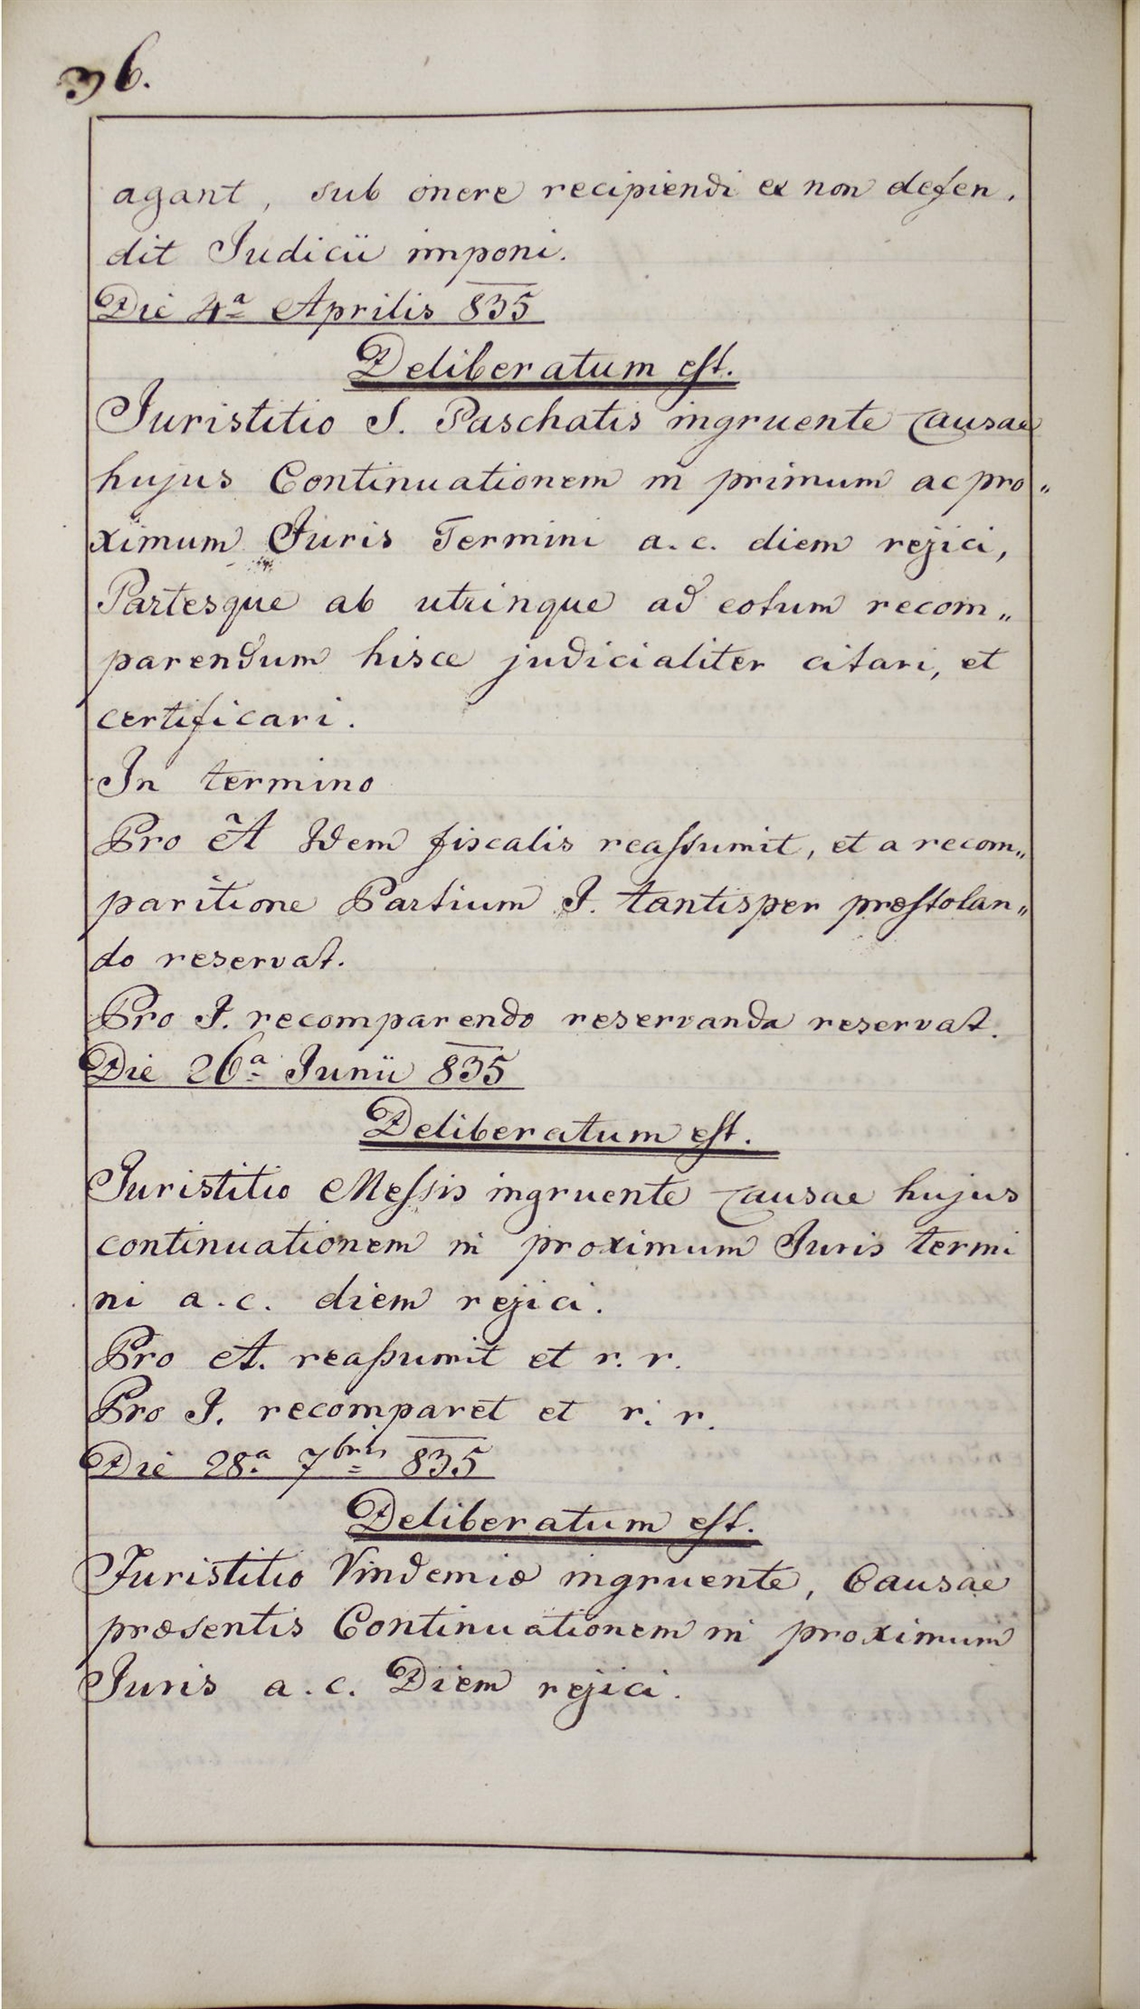 36.
agant, sub onere recipiendi ex non defen„
dit Judicii imponi.
Die 4ª Aprilis 835
Deliberatum est.
Juristitio S. Paschatis ingruente Causae
hujus Continuationem in primum ac pro„
ximum Juris Termini a.c. diem rejici,
Partesque ab utrinque ad eotum recom„
parendum hisce judicialiter citari, et
certificari.
In termino
Pro A Idem fiscalis reassumit, et a recom„
paritione Partium I. tantisper præstolan„
do reservat.
Pro I. recomparendo reservanda reservat.
Die 26ª Junii 835
Deliberatum est.
Juristitio Messis ingruente Causae hujus
continuationem in proximum Juris termi
ni a.c. diem rejici.
Pro A. reassumit et r. r.
Pro I. recomparet et r. r.
Die 28ª 7bris 835
Deliberatum est.
Juristitio Vindemiæ ingruente, Causae
præsentis Continuationem in proximum
Juris a.c. Diem rejici.